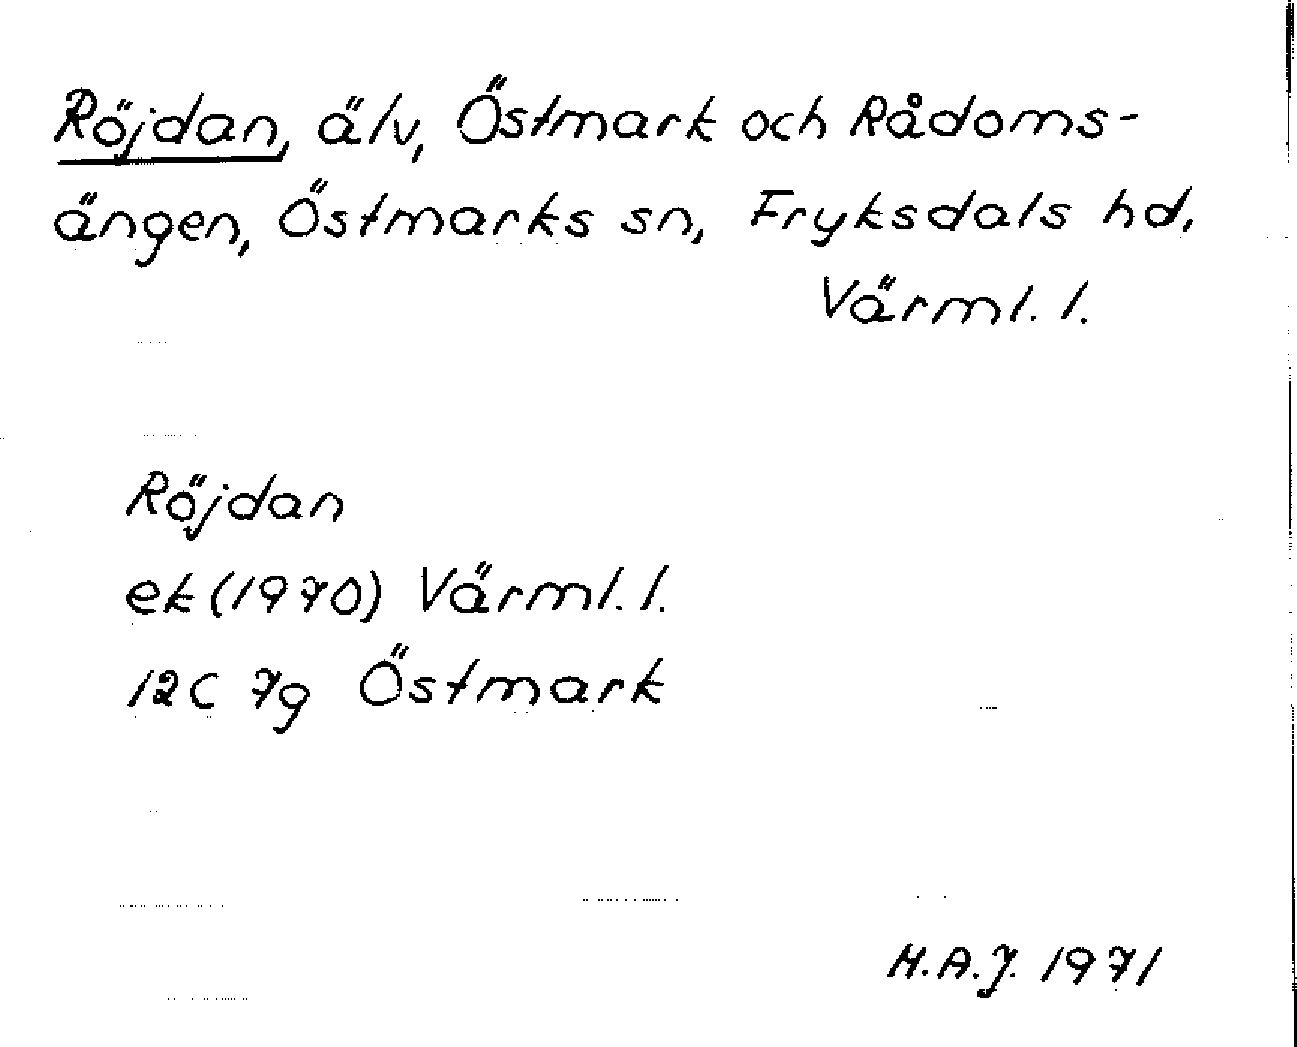 Röjdan, älv, Östmark och Rådoms-
ängen, Östmarks sn, Fryksdals hd,
Värml. l.
Röjdan
ek (1970) Värml. l.
12C 7g Östmark
H.A.J. 1971